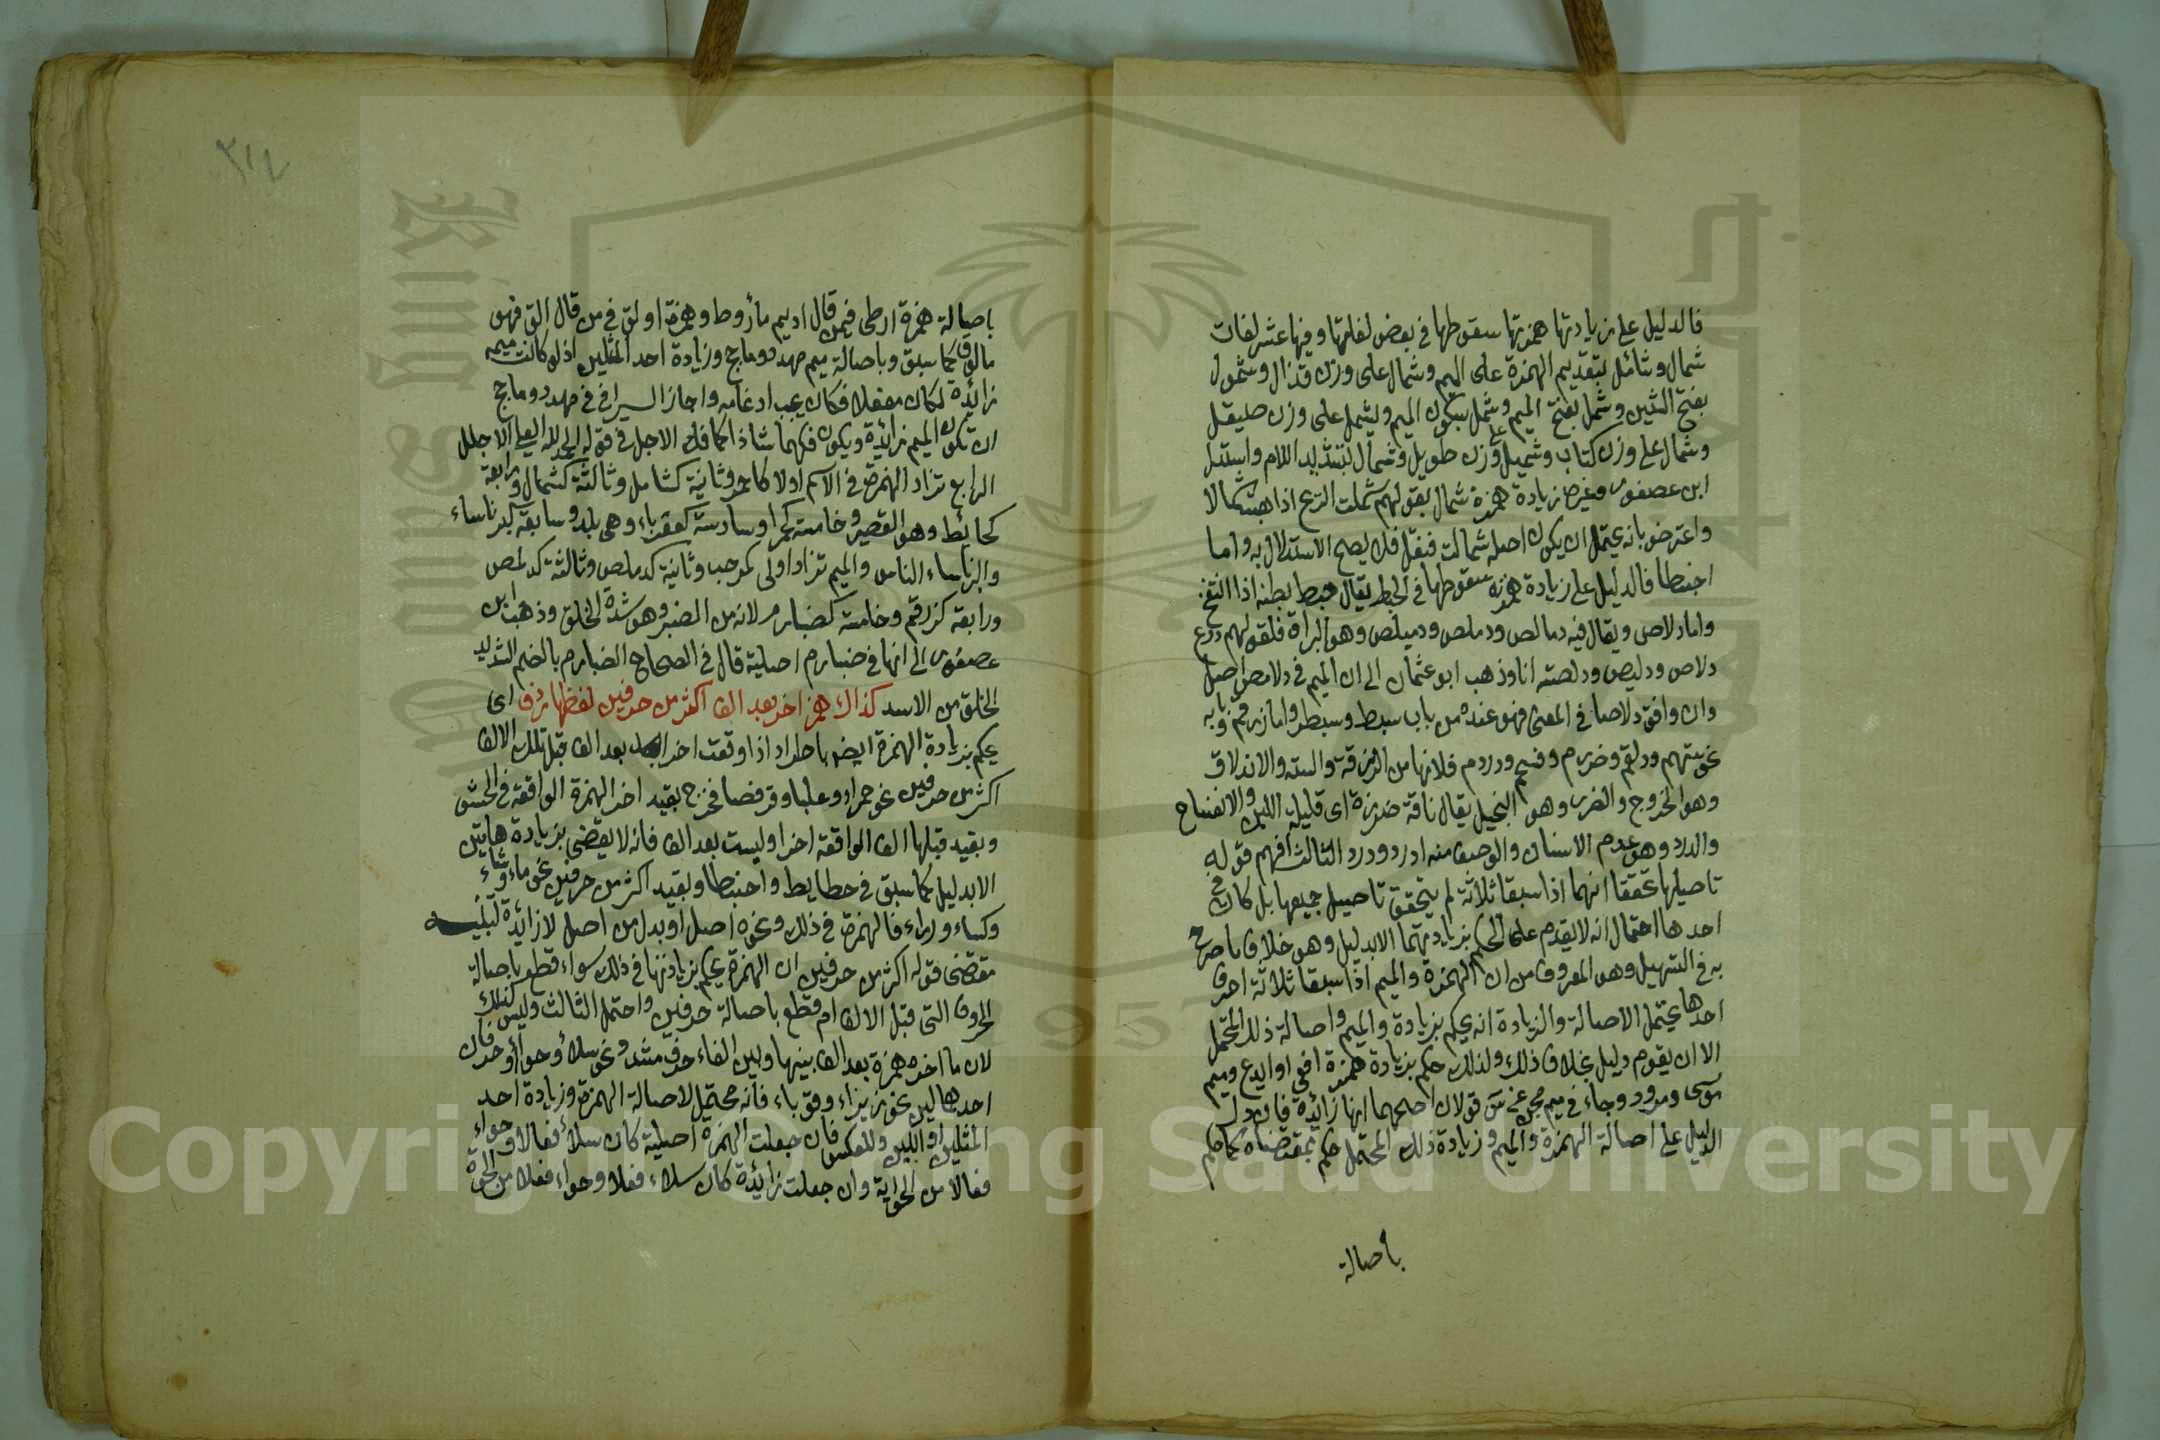 فالدليل على زيادتها همزتها سقوطها في بعض لغاتها وفيها عشر لغات
شمال وشائمل بتقديم الهمزة على الميم وشمال على وزن قذال وشمول
بفتح الشين وشمل بفتح الميم وشمل بسكون الميم وشيمل على وزن صيقل
وشمال على وزن كتاب وشميل على وزن طويل وشمأل بتشديد اللام واستدل
ابن عصفور وغيره زيادة همزة شمال بقولهم شملت الريح اذا هبت شمالا
واعترض بانه يحتمل ان يكون اصله شمالت فنقل فلا يصح الاستدلال به واما
احبنطا فالدليل على زيادة همزته سقوطها في الحبط يقال حبط بطنه اذا انتفخ
واما دلاص ويقال فيه دمالص ودملص ودميلص وهو البراق فلقولهم درع
دلاص ودليص ودلصته انا وذهب ابو عثمان الى ان الميم في دلامص اصل
وان وافق دلاصا في المعنى فهو عنده من باب سبط وسبطر واما زرقم وبابه
نحو ستهم ودلقم وضرزم وفسحم ودردم فلانها من الزرقة والسته والاندلاق
وهو الخروج والضرز وهو البخيل يقال ناقة ضرزة اى قليلة اللبن والانفساح
والدرد وهو عدم الاسنان والوصف منه ادرد ودرد الثالث افهم قوله
تاصيلها تحققا انهما اذا سبقا ثلاثة لم يتحقق تاصيل جميعها بل كان في
احدها احتمال انه لا يقدم على الحكم بزيادتهما الا بدليل وهو خلاف ما صرح
به في التسهيل وهو المعروف من ان الهمزة والميم اذا سبقا ثلاثة احرف
احدها يحتمل الاصالة والزيادة انه يحكم بزيادة والميم واصالة ذلك المحتمل
الا ان يقوم دليل بخلاف ذلك ولذلك حكم بزيادة همزة افعى وايدع وميم
موسى ومزود وجاء في ميم مجن عن س قولان اصحهما انها زائدة فان دل
الدليل على اصالة الهمزة والميم وزيادة ذلك المحتمل حكم بمقتضاه كما حكم
باصالة
٣١٤
باصالة همزة ارطى فيمن قال اديم مأروط وهمزة اولق فيمن قال الق فهو
مالوق كما سبق وباصالة ميم مهدد وماجج وزيادة احد المثلين اذ لو كانت ميمه
زائدة لكان مفعلا فكان يجب ادغامه واجاز السيرافى في مهدد وماجج
ان تكون الميم زائدة ويكون فكهما شاذا كما فك الاجل في قوله الحمد لله العلي الاجلل
الرابع تزاد الهمزة في الاسم اولا كاحمر وثانية كشامل وثالثة كشمال ورابعة
كحائط وهو القصير وخامسة كحمرا وسادسة كعقرباء وهى بلد وسابعة كبرناساء
والبرناساء الناس والميم تزاد اولى كمرحب وثانية كدملص وثالثة كدلمص
ورابعة كزرقم وخامسة كضبارم لانه من الضبر وهو شدة الخلق وذهب ابن
عصفور الى انها في ضبارم اصلية قال في الصحاح الضبارم بالضم الشديد
الخلق من الاسد كذاك همز اخر بعد الف اكثر من حرفين لفظها ردف اى
يحكم بزيادة الهمزة ايضا باطراد اذا وقعت اخرا بعد الف قبل تلك الالف
اكثر من حرفين نحو حمراء وعلباء وقرفصا فخرج بقيد اخر الهمزة الواقعة في الحشو
وبقيد قبلها الف الواقعة اخرا وليست بعد الف فانه لا يقضى بزيادة هاتين
الا بدليل كما سبق في حطايط واحبنطا وبقيد اكثر من حرفين نحو ماء وشاء
وكساء ورداء فالهمزة في ذلك ونحوه اصل او بدل من اصل لا زائدة تنبيه
مقتضى قوله اكثر من حرفين ان الهمزة يحكم بزيادتها في ذلك سواء قطع باصالة
الحروف التي قبل الالف ام قطع باصالة حرفين واحتمل الثالث وليس كذلك
لان ما اخره همزة بعد الف بينها وبين الفاء حرف مشدد نحو سلاء وحواء او حرفان
احدهما لين نحو زيزاء وقوباء فانه محتمل لاصالة الهمزة وزيادة احد
المثلين او اللين وللعكس فان جعلت الهمزة اصلية كان سلاء فعالا وحواء
فعالا من الحواية وان جعلت زائدة كان سلاء فعلا وحواء فعلا من الحوة